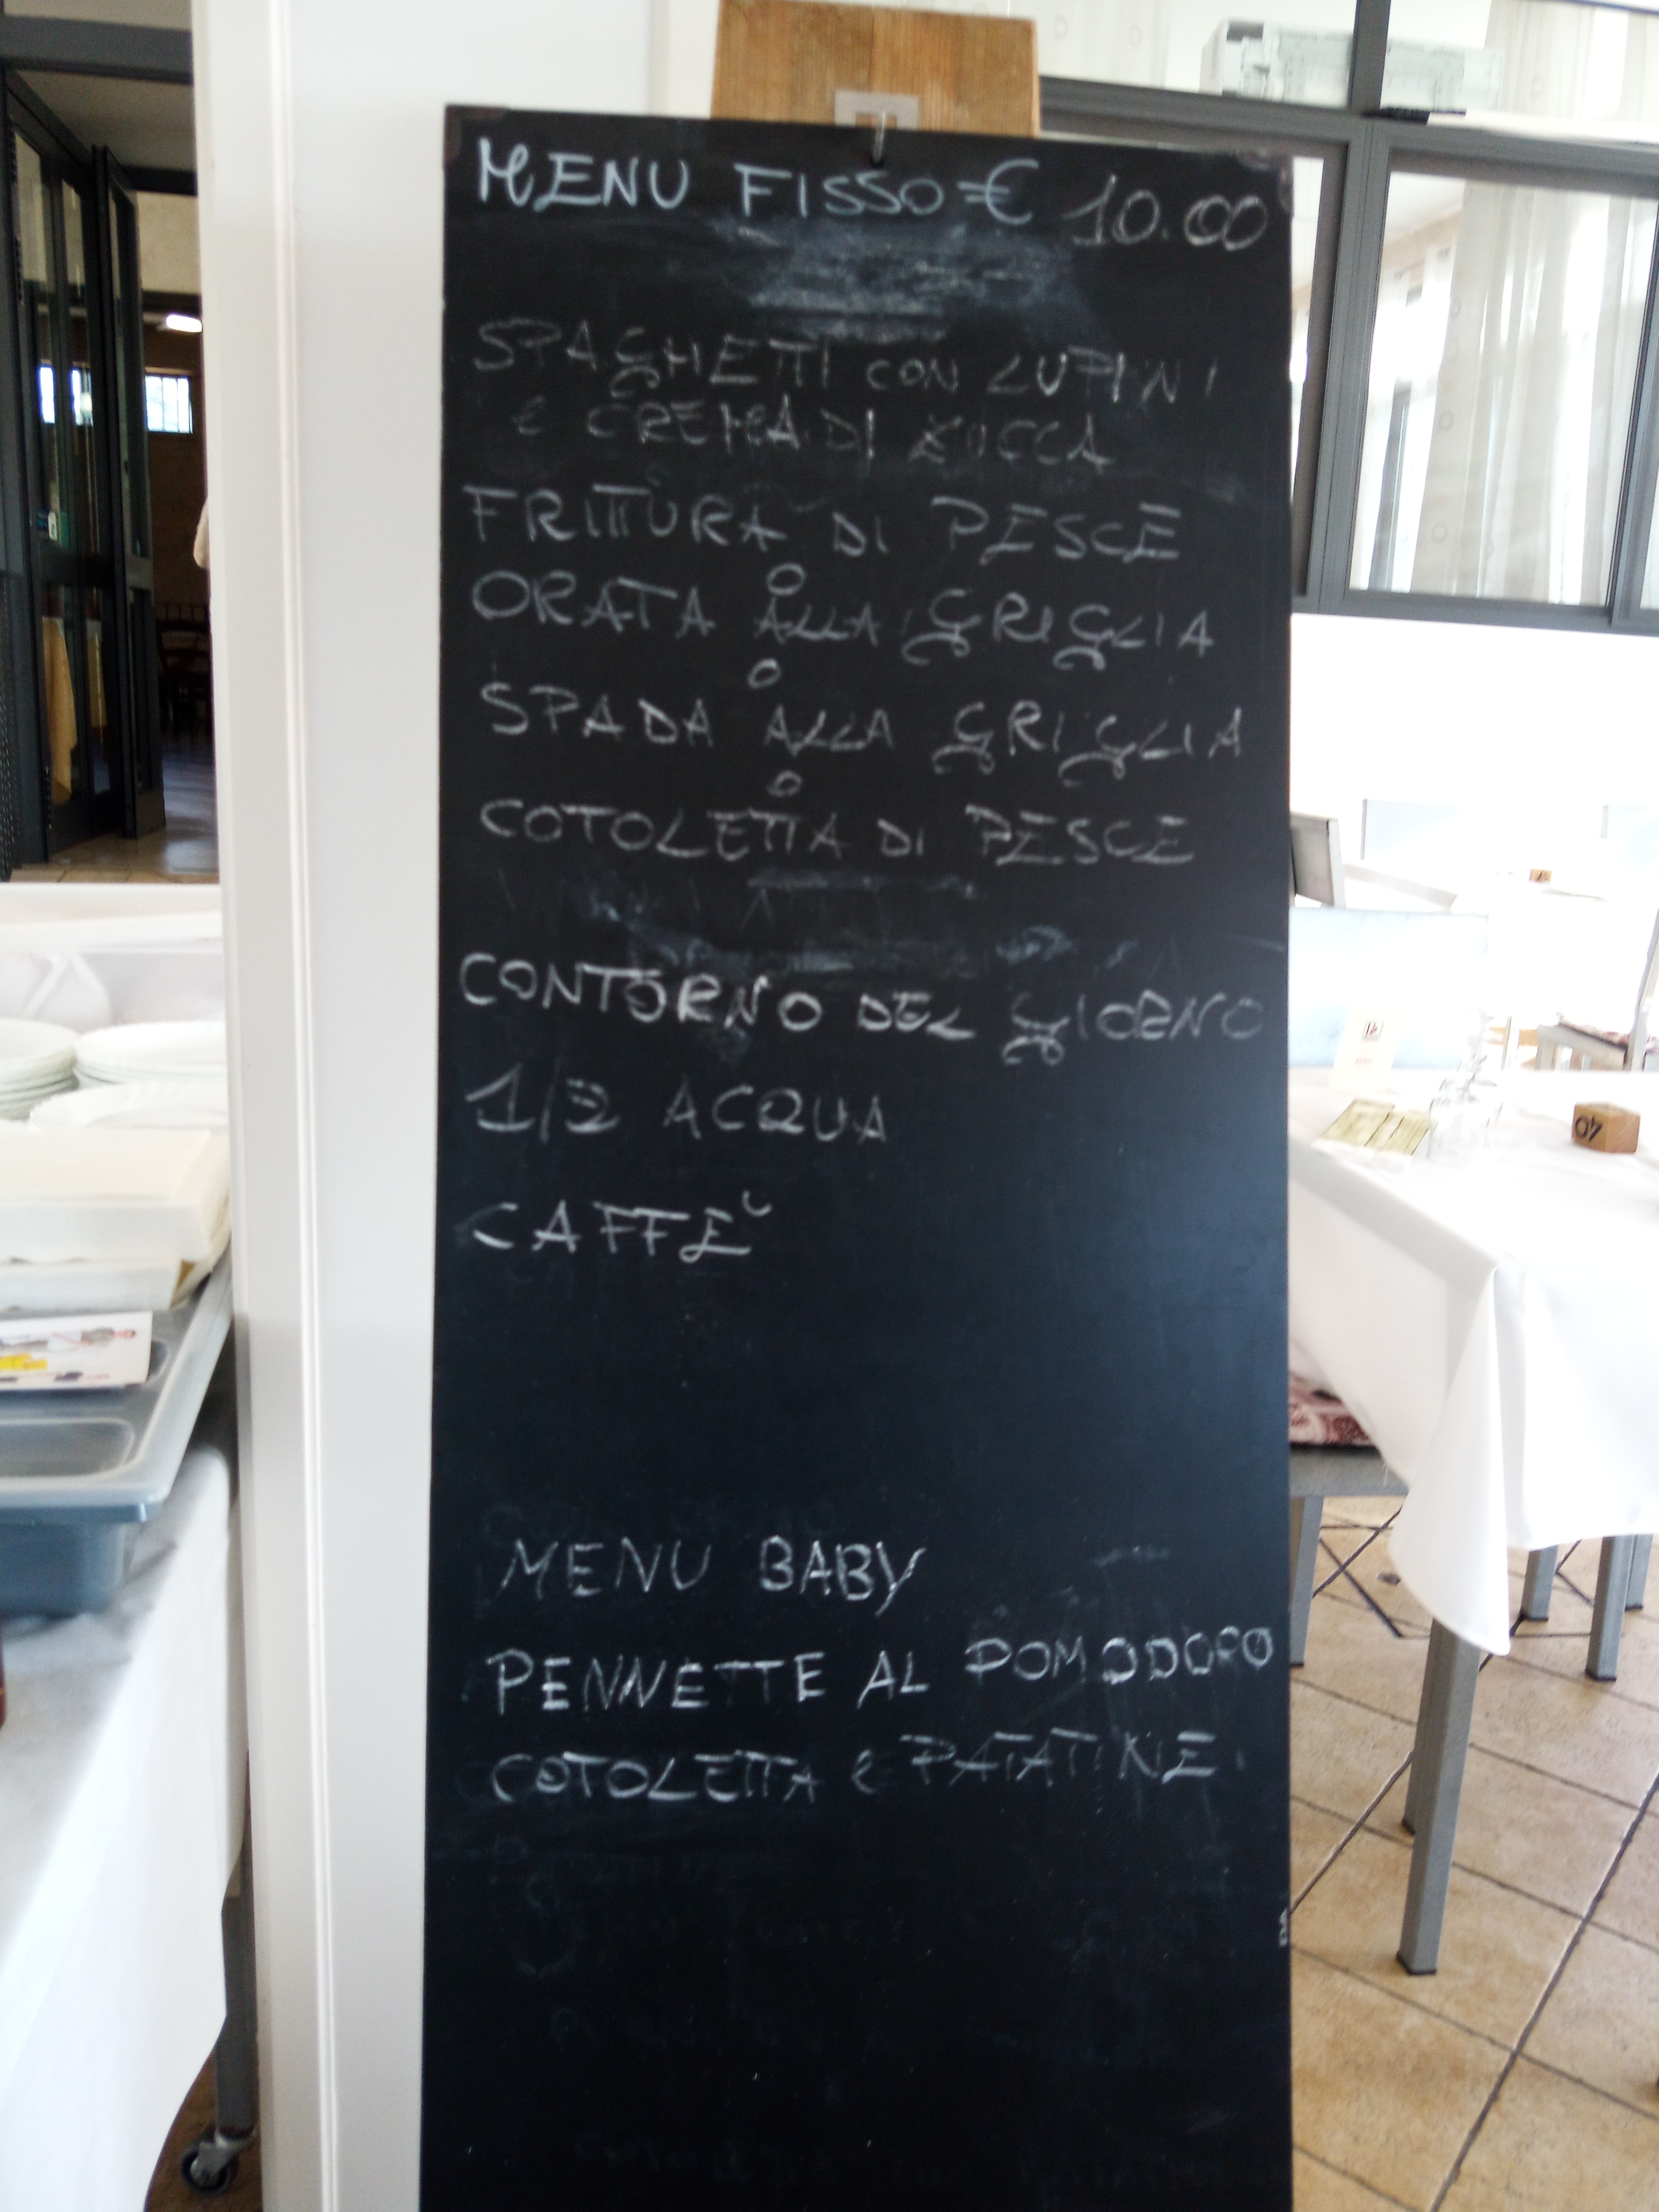 MENU FISSO = € 10.00
SPAGHETTI CON LUPINI
e CREMA DI ZUCCA
FRITTURA DI PESCE
O
ORATA ALLA GRIGLIA
O
SPADA ALLA GRIGLIA
O
COTOLETTA DI PESCE
CONTORNO DEL GIORNO
1/2 ACQUA
CAFFE'
MENU BABY
PENNETTE AL POMODORO
COTOLETTA e PATATINE.
40